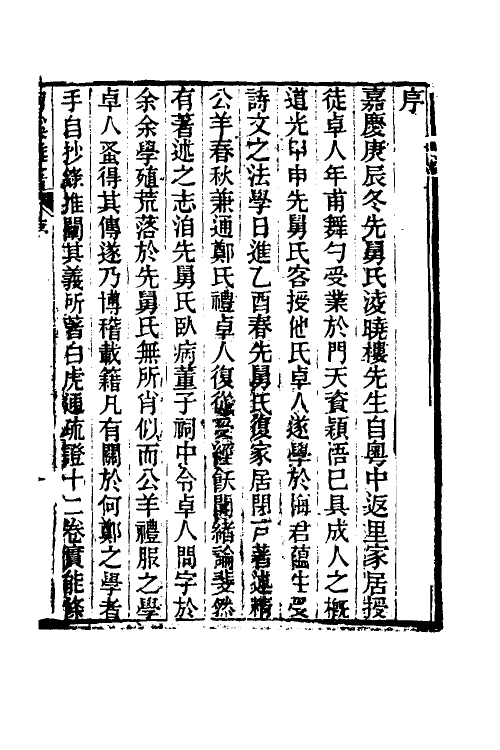 序
嘉慶庚辰冬先舅氏淩曉樓先生自粵中返里家居授
徒卓人年甫舞勺受業於門天資穎悟已具成人之概
道光甲申先舅氏客授他氏卓人遂學於梅君蘊生受
詩文之法學日進乙酉春先舅氏復家居閉戸著述精
公羊春秋兼通鄭氏禮卓人復從受經飫聞緒論斐然
有著述之志洎先舅氏臥病董子祠中令卓人問字於
余余學殖荒落於先舅氏無所肖似而公羊禮服之學
卓人蚤得其傳遂乃博稽載籍凡有關於何鄭之學者
手自抄錄推闡其義所著白虎通疏證十二卷實能條